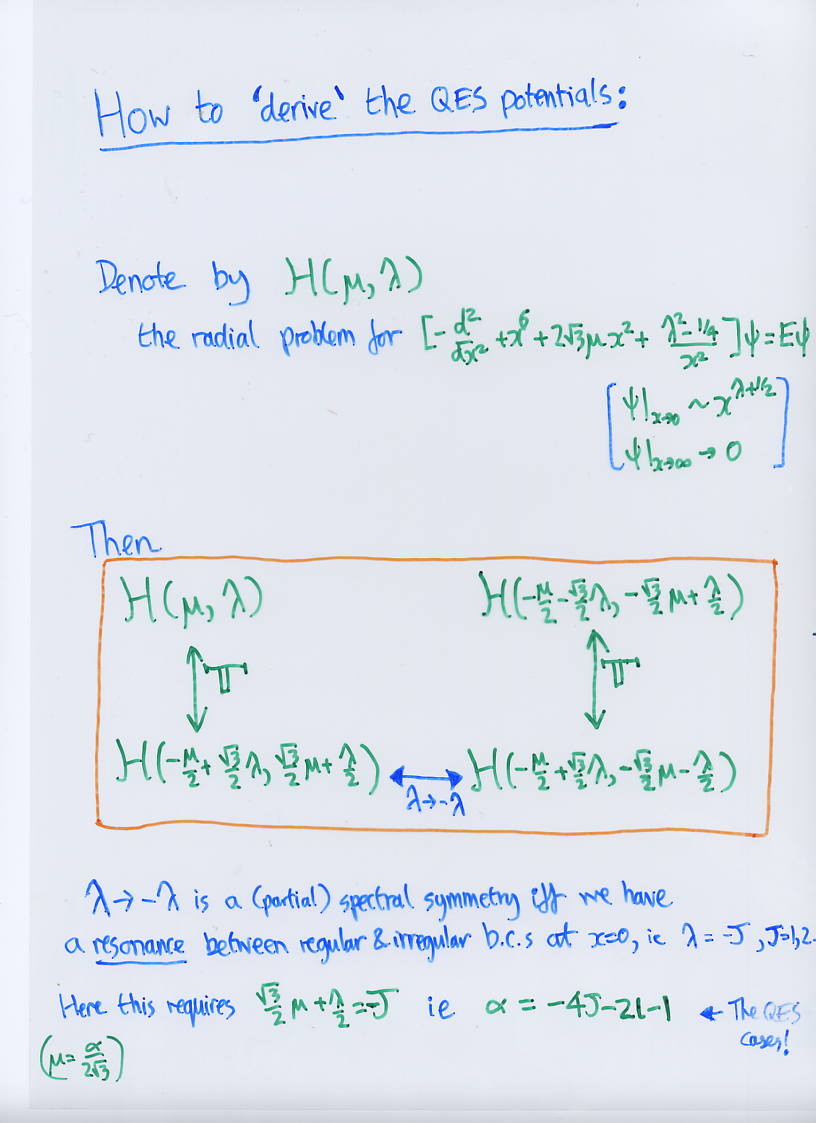 How to 'derive' the QES potentials:
Denote by H(μ,λ)
the radial problem for [-d²/dx² + x⁶ + 2√3μx² + (λ²-1/4)/x²]ψ=Eψ
[ψ|x→0 ~ x^(λ+1/2)
ψ|x→∞ → 0]
Then
H(μ,λ) H(-μ/2-√3/2λ, -√3/2μ+λ/2)
↕π ↕π
H(-μ/2+√3/2λ, √3/2μ+λ/2) ↔ H(-μ/2+√3/2λ, -√3/2μ-λ/2)
λ→-λ
λ→-λ is a (partial) spectral symmetry iff we have
a resonance between regular & irregular b.c.s at x=0, ie λ = -J, J=1,2..
Here this requires √3/2μ+λ/2=-J ie α = -4J-2l-1 ← The QES
cases!
(μ=α/2√3)